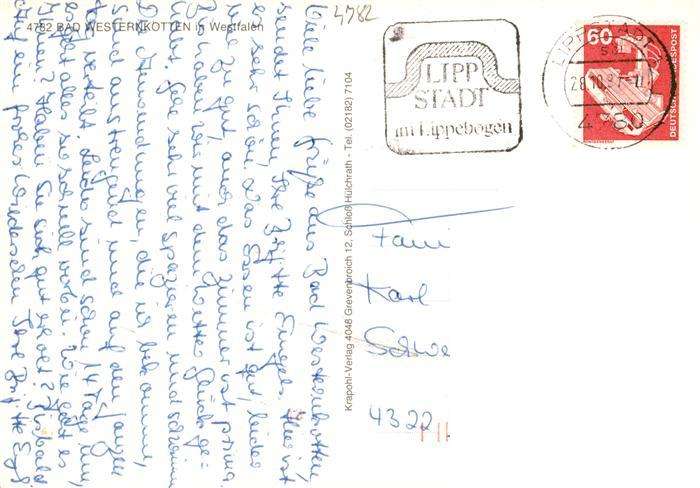 4782
4782 BAD WESTERNKOTTEN in Westfalen
LIPP
STADT
im Lippebogen
LIPPSTADT
28.10.
60
DEUTSCHE BUNDESPOST
Viele liebe Grüße aus Bad Westernkotten,
sendet Ihnen Ihre Brigitte Alles ist
sehr schön, das Essen ist gut, leider
zu gut, auch das Zimmer ist prima.
haben wir mit dem Wetter Glück ge-
habt. Gehe sehr viel spazieren und schwimmen
Anwendungen, die ich bekomme,
sind anstrengend und auf den ganzen
verteilt. Leider sind schon 14 Tage um,
geht alles so schnell vorbei. Wie geht es
Ihnen? Haben Sie sich gut erholt?
Auf ein frohes Wiedersehen Ihre Brigitte
Krapohl-Verlag 4048 Grevenbroich 12, Schloß Hülchrath - Tel. (02182) 7104
Fam
Karl
Schwe
4322